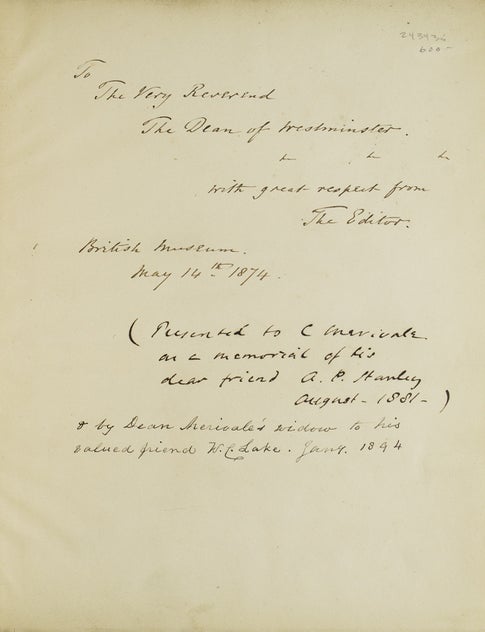 243436
600-
To
The Very Reverend
The Dean of Westminster.
with great respect from
The Editor.
British Museum.
May 14th 1874.
(Presented to C Merivale
as a memorial of his
dear friend A. P. Stanley
August - 1881 - )
& by Dean Merivale's widow to his
valued friend W. C. Lake. Jany. 1894